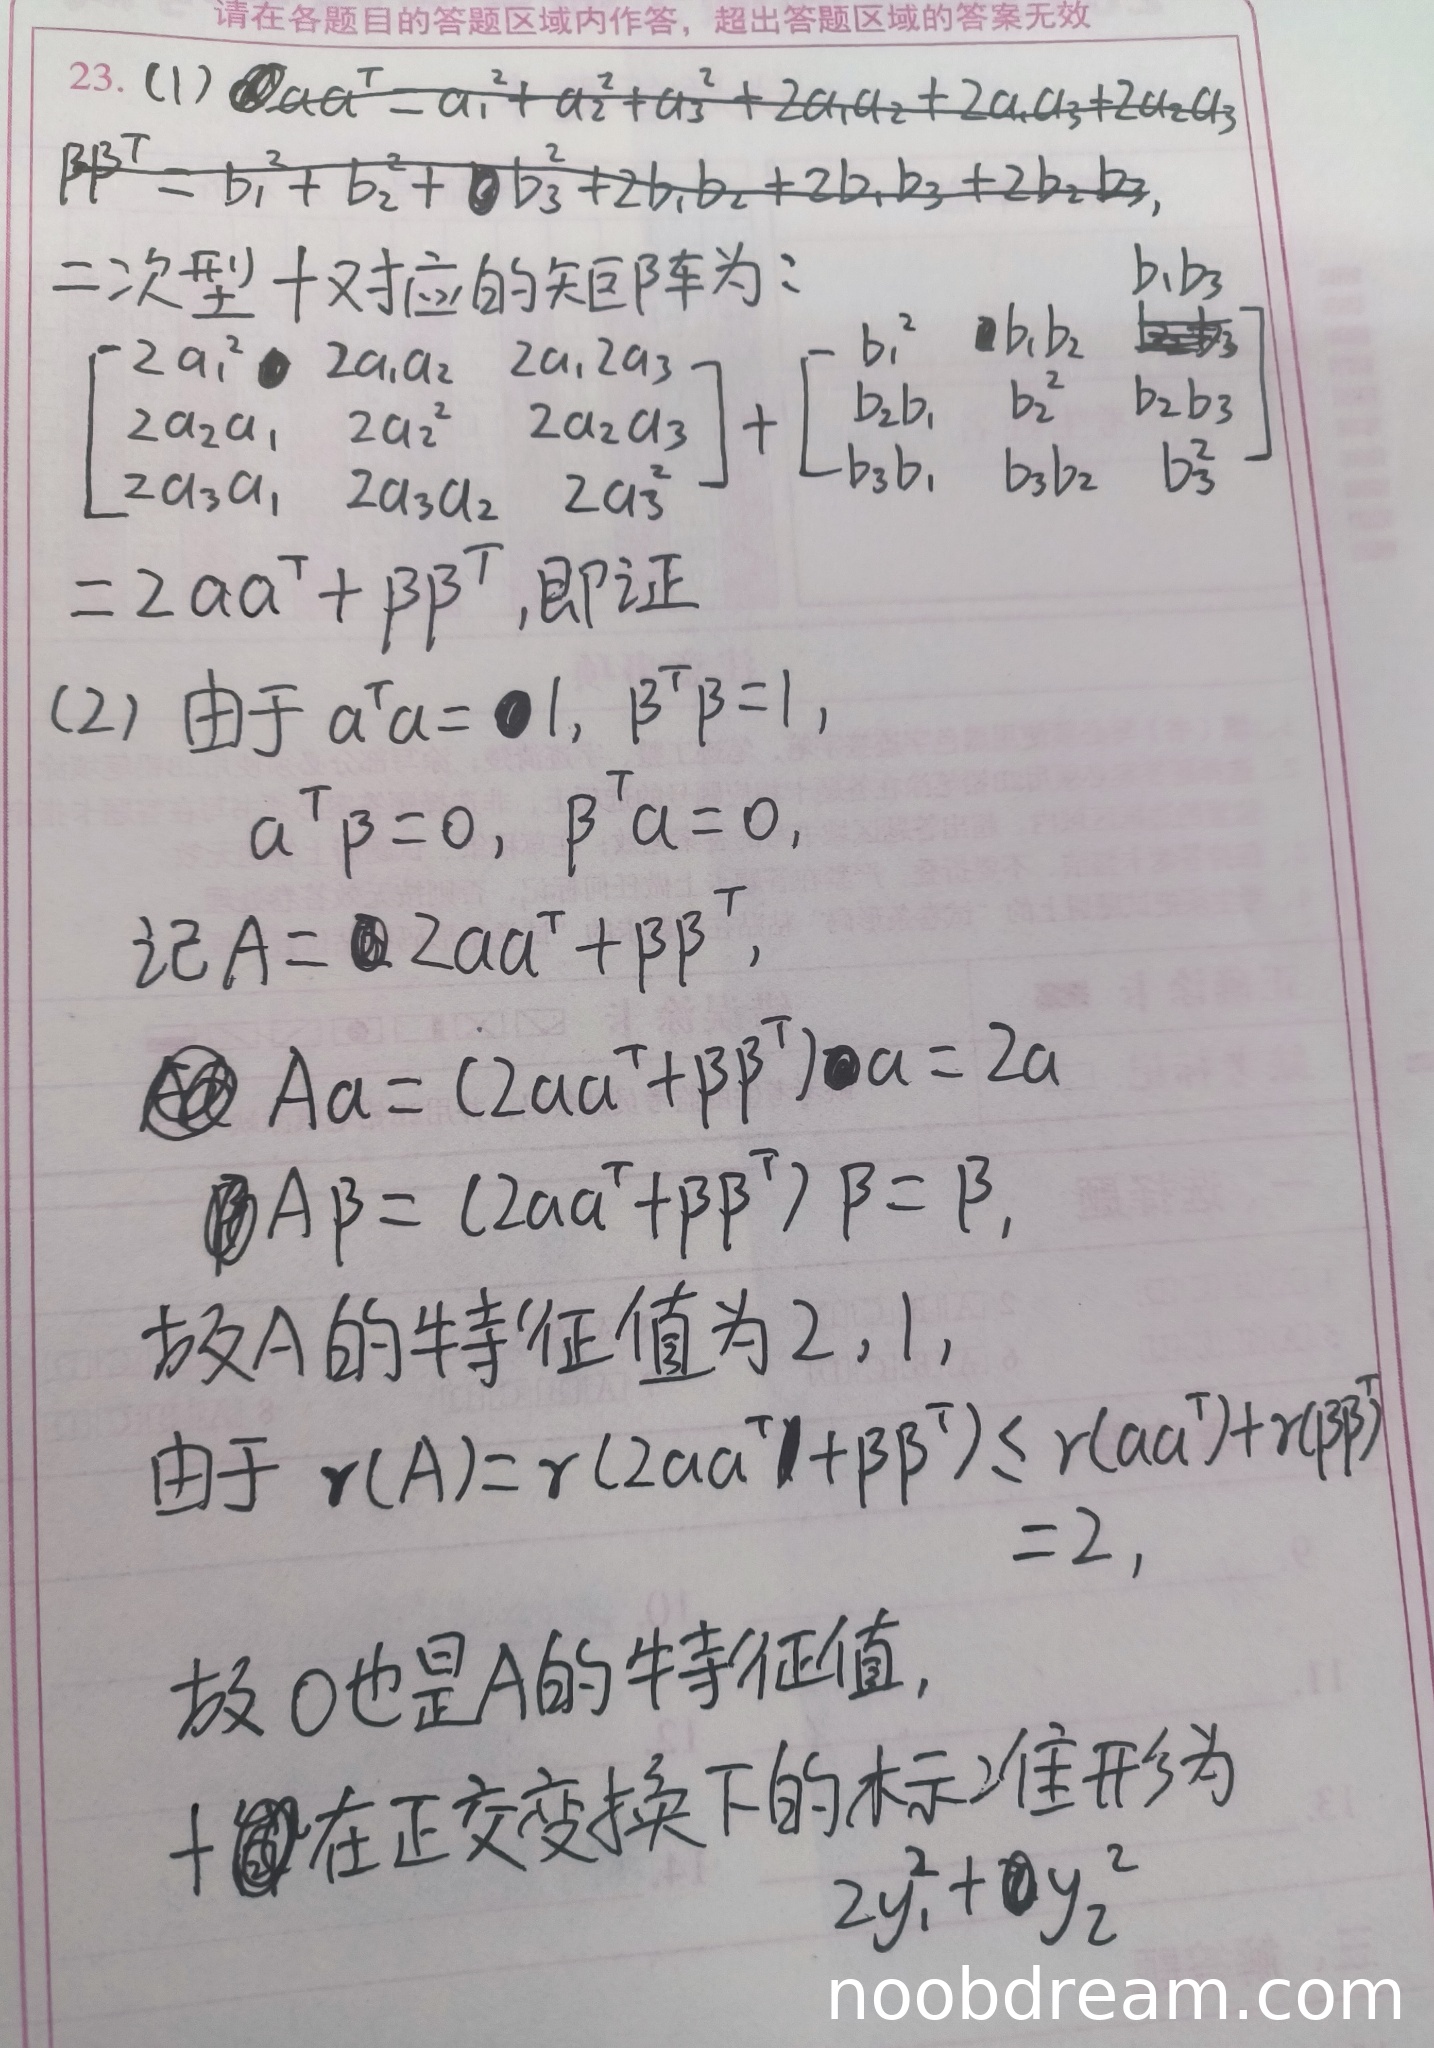 请在各题目的答题区域内作答，超出答题区域的答案无效
23. (1) aaᵀ = a₁² + a₂² + a₃² + 2a₁a₂ + 2a₁a₃ + 2a₂a₃
ββᵀ = b₁² + b₂² + b₃² + 2b₁b₂ + 2b₁b₃ + 2b₂b₃,
二次型f对应的矩阵为：
b₁b₃
2a₁² 2a₁a₂ 2a₁2a₃ b₁² b₁b₂
2a₂a₁ 2a₂² 2a₂a₃ + b₂b₁ b₂² b₂b₃
2a₃a₁ 2a₃a₂ 2a₃² b₃b₁ b₃b₂ b₃²
= 2aaᵀ + ββᵀ, 即证
(2) 由于 aᵀa = 1, βᵀβ = 1,
aᵀβ = 0, βᵀa = 0,
记A = 2aaᵀ + ββᵀ,
Aa = (2aaᵀ + ββᵀ)a = 2a
Aβ = (2aaᵀ + ββᵀ)β = β,
故A的特征值为2, 1,
由于 r(A) = r(2aaᵀ + ββᵀ) ≤ r(aaᵀ) + r(ββᵀ)
= 2,
故0也是A的特征值,
f在正交变换下的标准形为
2y₁² + y₂²
noobdream.com